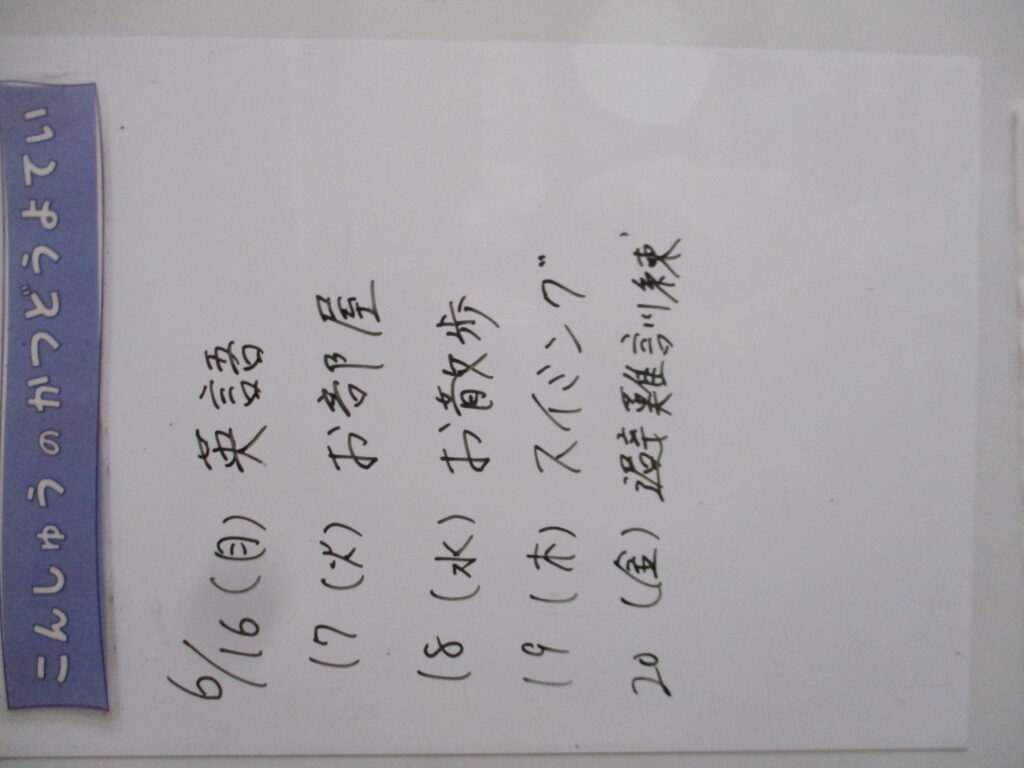 こんしゅうのかつどうよてい
6/16(月) 英語
17(火) お部屋
18(水) お散歩
19(木) スイミング
20(金) 避難訓練